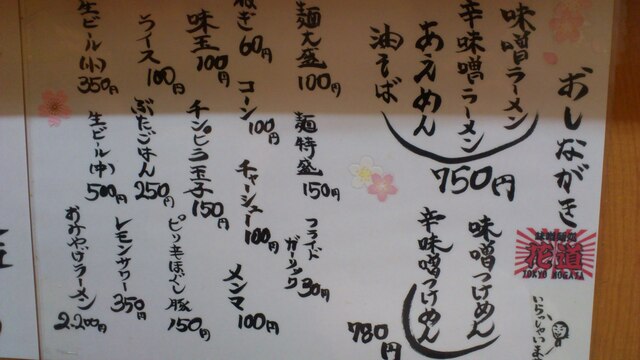 おしながき
味噌麺処
花道
TOKYO NOGATA
いらっしゃいませ
味噌ラーメン
辛味噌ラーメン
あえめん
油そば
750円
味噌つけめん
辛味噌つけめん
780円
麺大盛
100円
麺特盛
150円
フライドガーリック
30円
ねぎ
60円
コーン
100円
チャーシュー
100円
メンマ
100円
味玉
100円
チンピラ玉子
150円
ピリ辛ほぐし豚
150円
ライス
100円
ぶたごはん
250円
レモンサワー
350円
生ビール(小)
350円
生ビール(中)
500円
おみやげラーメン
2.200円